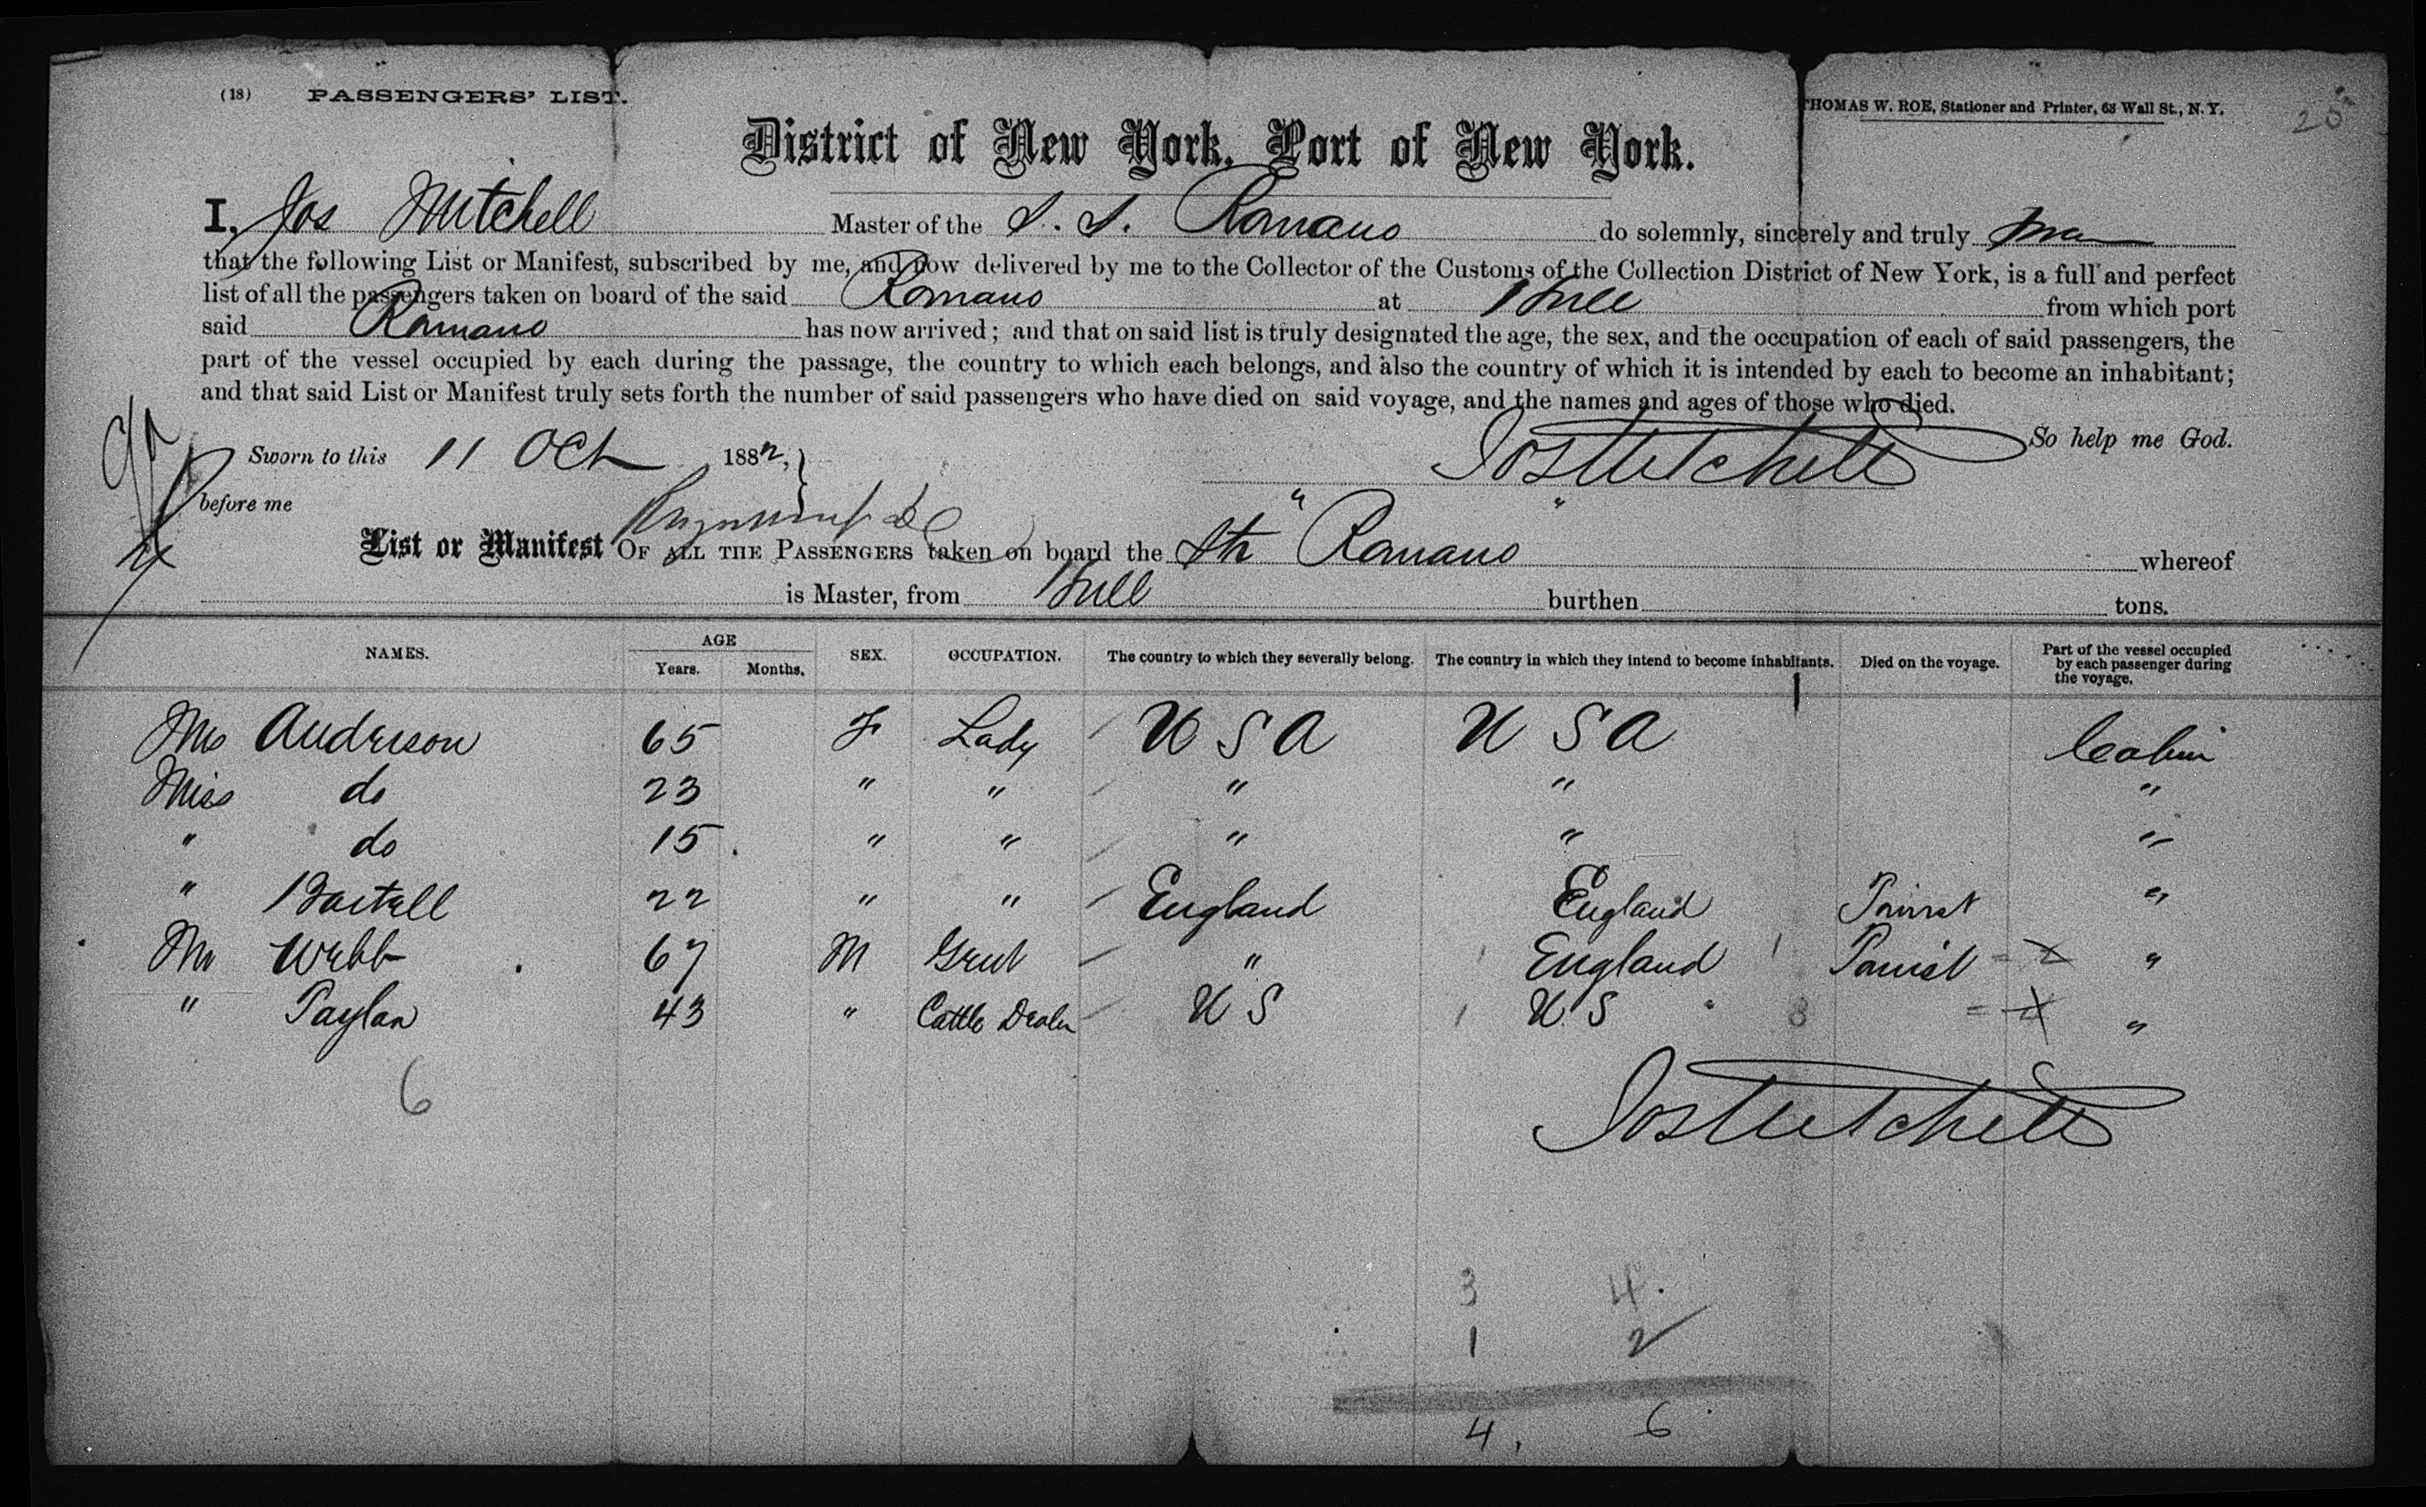 (18) PASSENGERS' LIST.
THOMAS W. ROE, Stationer and Printer, 63 Wall St., N. Y.
25
District of New York, Port of New York.
I, Jos Mitchell Master of the S. S. Romano do solemnly, sincerely and truly
that the following List or Manifest, subscribed by me, and now delivered by me to the Collector of the Customs of the Collection District of New York, is a full and perfect
list of all the passengers taken on board of the said Romano at Hull from which port
said Romano has now arrived; and that on said list is truly designated the age, the sex, and the occupation of each of said passengers, the
part of the vessel occupied by each during the passage, the country to which each belongs, and also the country of which it is intended by each to become an inhabitant;
and that said List or Manifest truly sets forth the number of said passengers who have died on said voyage, and the names and ages of those who died.
So help me God.
Sworn to this 11 Oct 1882,
Jos Mitchell
before me
List or Manifest OF ALL THE PASSENGERS taken on board the Str "Romano" whereof
is Master, from Hull burthen tons.
NAMES. AGE Years. Months. SEX. OCCUPATION. The country to which they severally belong. The country in which they intend to become inhabitants. Died on the voyage. Part of the vessel occupied by each passenger during the voyage.
Mrs Anderson 65 F Lady U S A U S A Cabin
Miss do 23 " " " " "
" do 15 " " " " "
" Bartell 22 " " England England Tourist "
Mr Webb 67 M Gent " England Tourist "
" Taylor 43 " Cattle Dealer U S U S "
6
Jos Mitchell
3 4.
1 2
4, 6